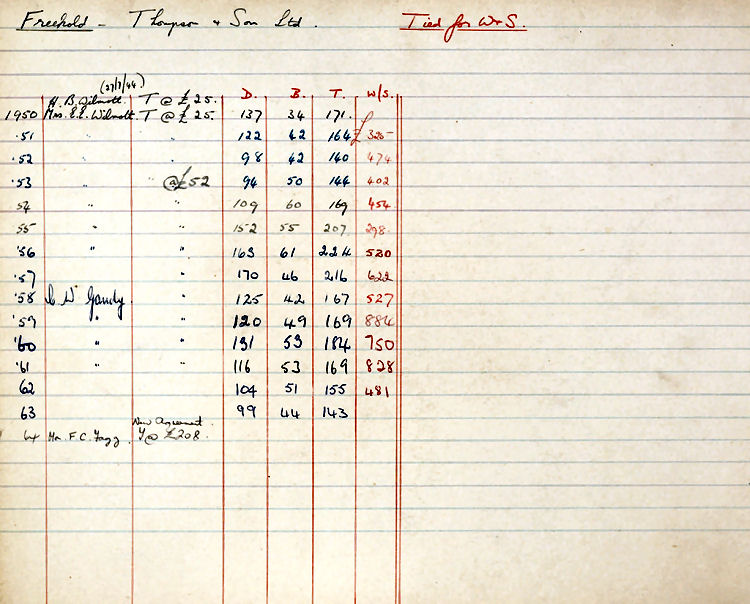 Freehold - Thompson & Son Ltd. Tied for W & S.
(27/7/44)
H. B. Wilmott. T @ £25. D. B. T. W/S.
1950 Mrs. E.E. Wilmott. T @ £25. 137 34 171.
'51 " " 122 42 164 £ 325
'52 " " 98 42 140 474
'53 " " @ £52 94 50 144 402
54 " " 109 60 169 454
55 " " 152 55 207 298
'56 " " 163 61 224 520
'57 " 170 46 216 622
'58 C W Gandy. " 125 42 167 527
'59 " " 120 49 169 884
'60 " " 131 53 184 750
'61 " " 116 53 169 828
62 104 51 155 481
63 99 44 143
New Agreement
64 Mr. F.C. Fagg. Y @ £208.